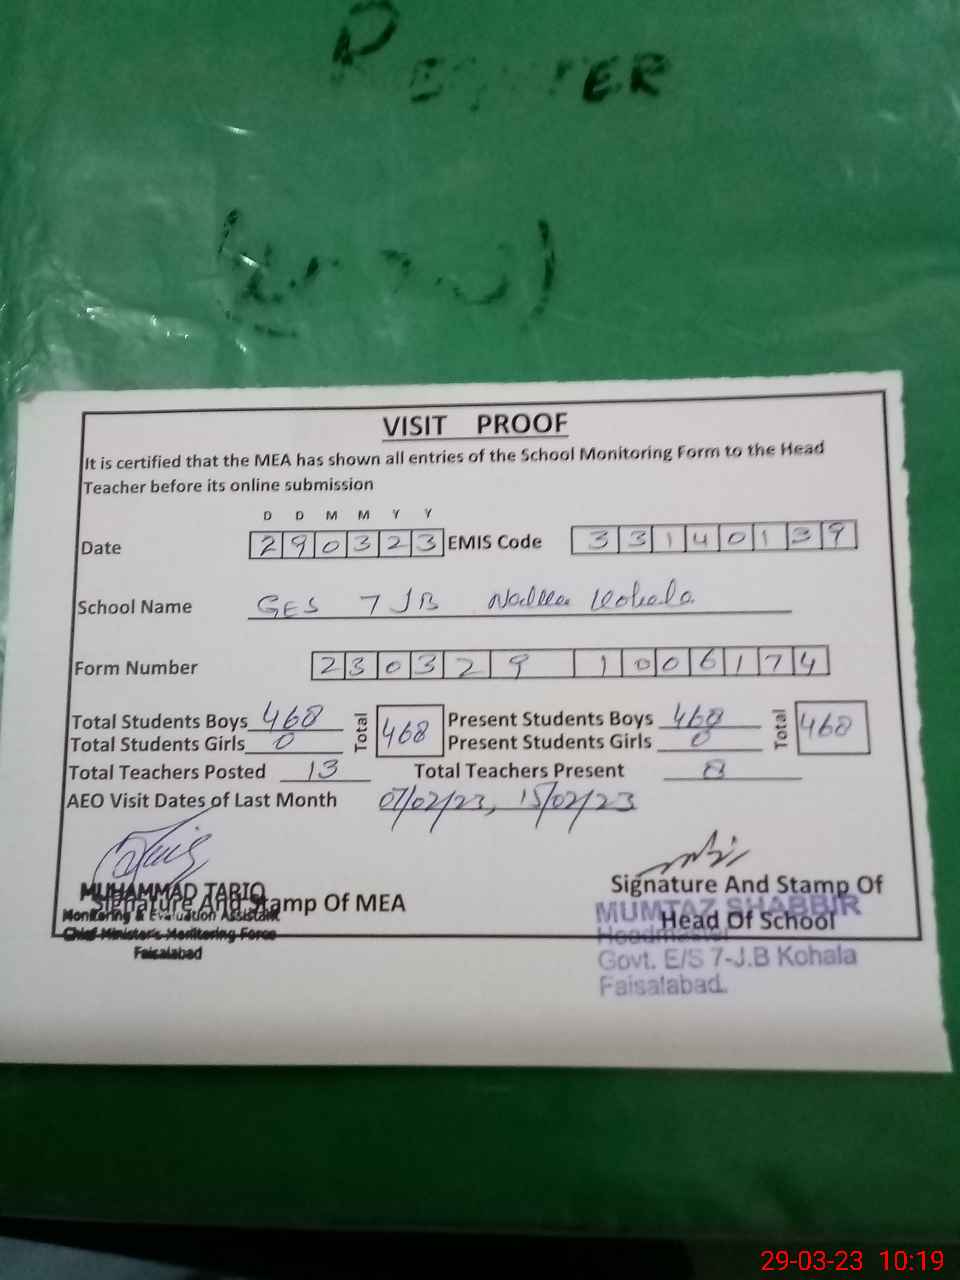 REGISTER
VISIT PROOF
It is certified that the MEA has shown all entries of the School Monitoring Form to the Head
Teacher before its online submission
D D M M Y Y
Date 290323 EMIS Code 33140139
School Name GES 7 JB Kohala
Form Number 230329 1006174
Total Students Boys 468 Total 468 Present Students Boys 468 Total 468
Total Students Girls 0 Present Students Girls 0
Total Teachers Posted 13 Total Teachers Present 8
AEO Visit Dates of Last Month 07/02/23, 15/02/23
MUHAMMAD TARIQ
Signature And Stamp Of MEA
Monitoring & Evaluation Assistant
Chief Minister's Monitoring Force
Faisalabad
Signature And Stamp Of
MUMTAZ SHABBIR
Head Of School
Headmaster
Govt. E/S 7-J.B Kohala
Faisalabad.
29-03-23 10:19